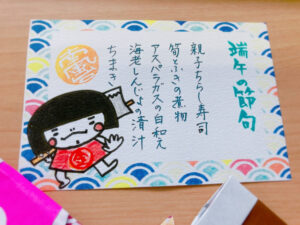 端午の節句
親子ちらし寿司
筍とふきの煮物
アスパラガスの白和え
海老しんじょの清汁
ちまき